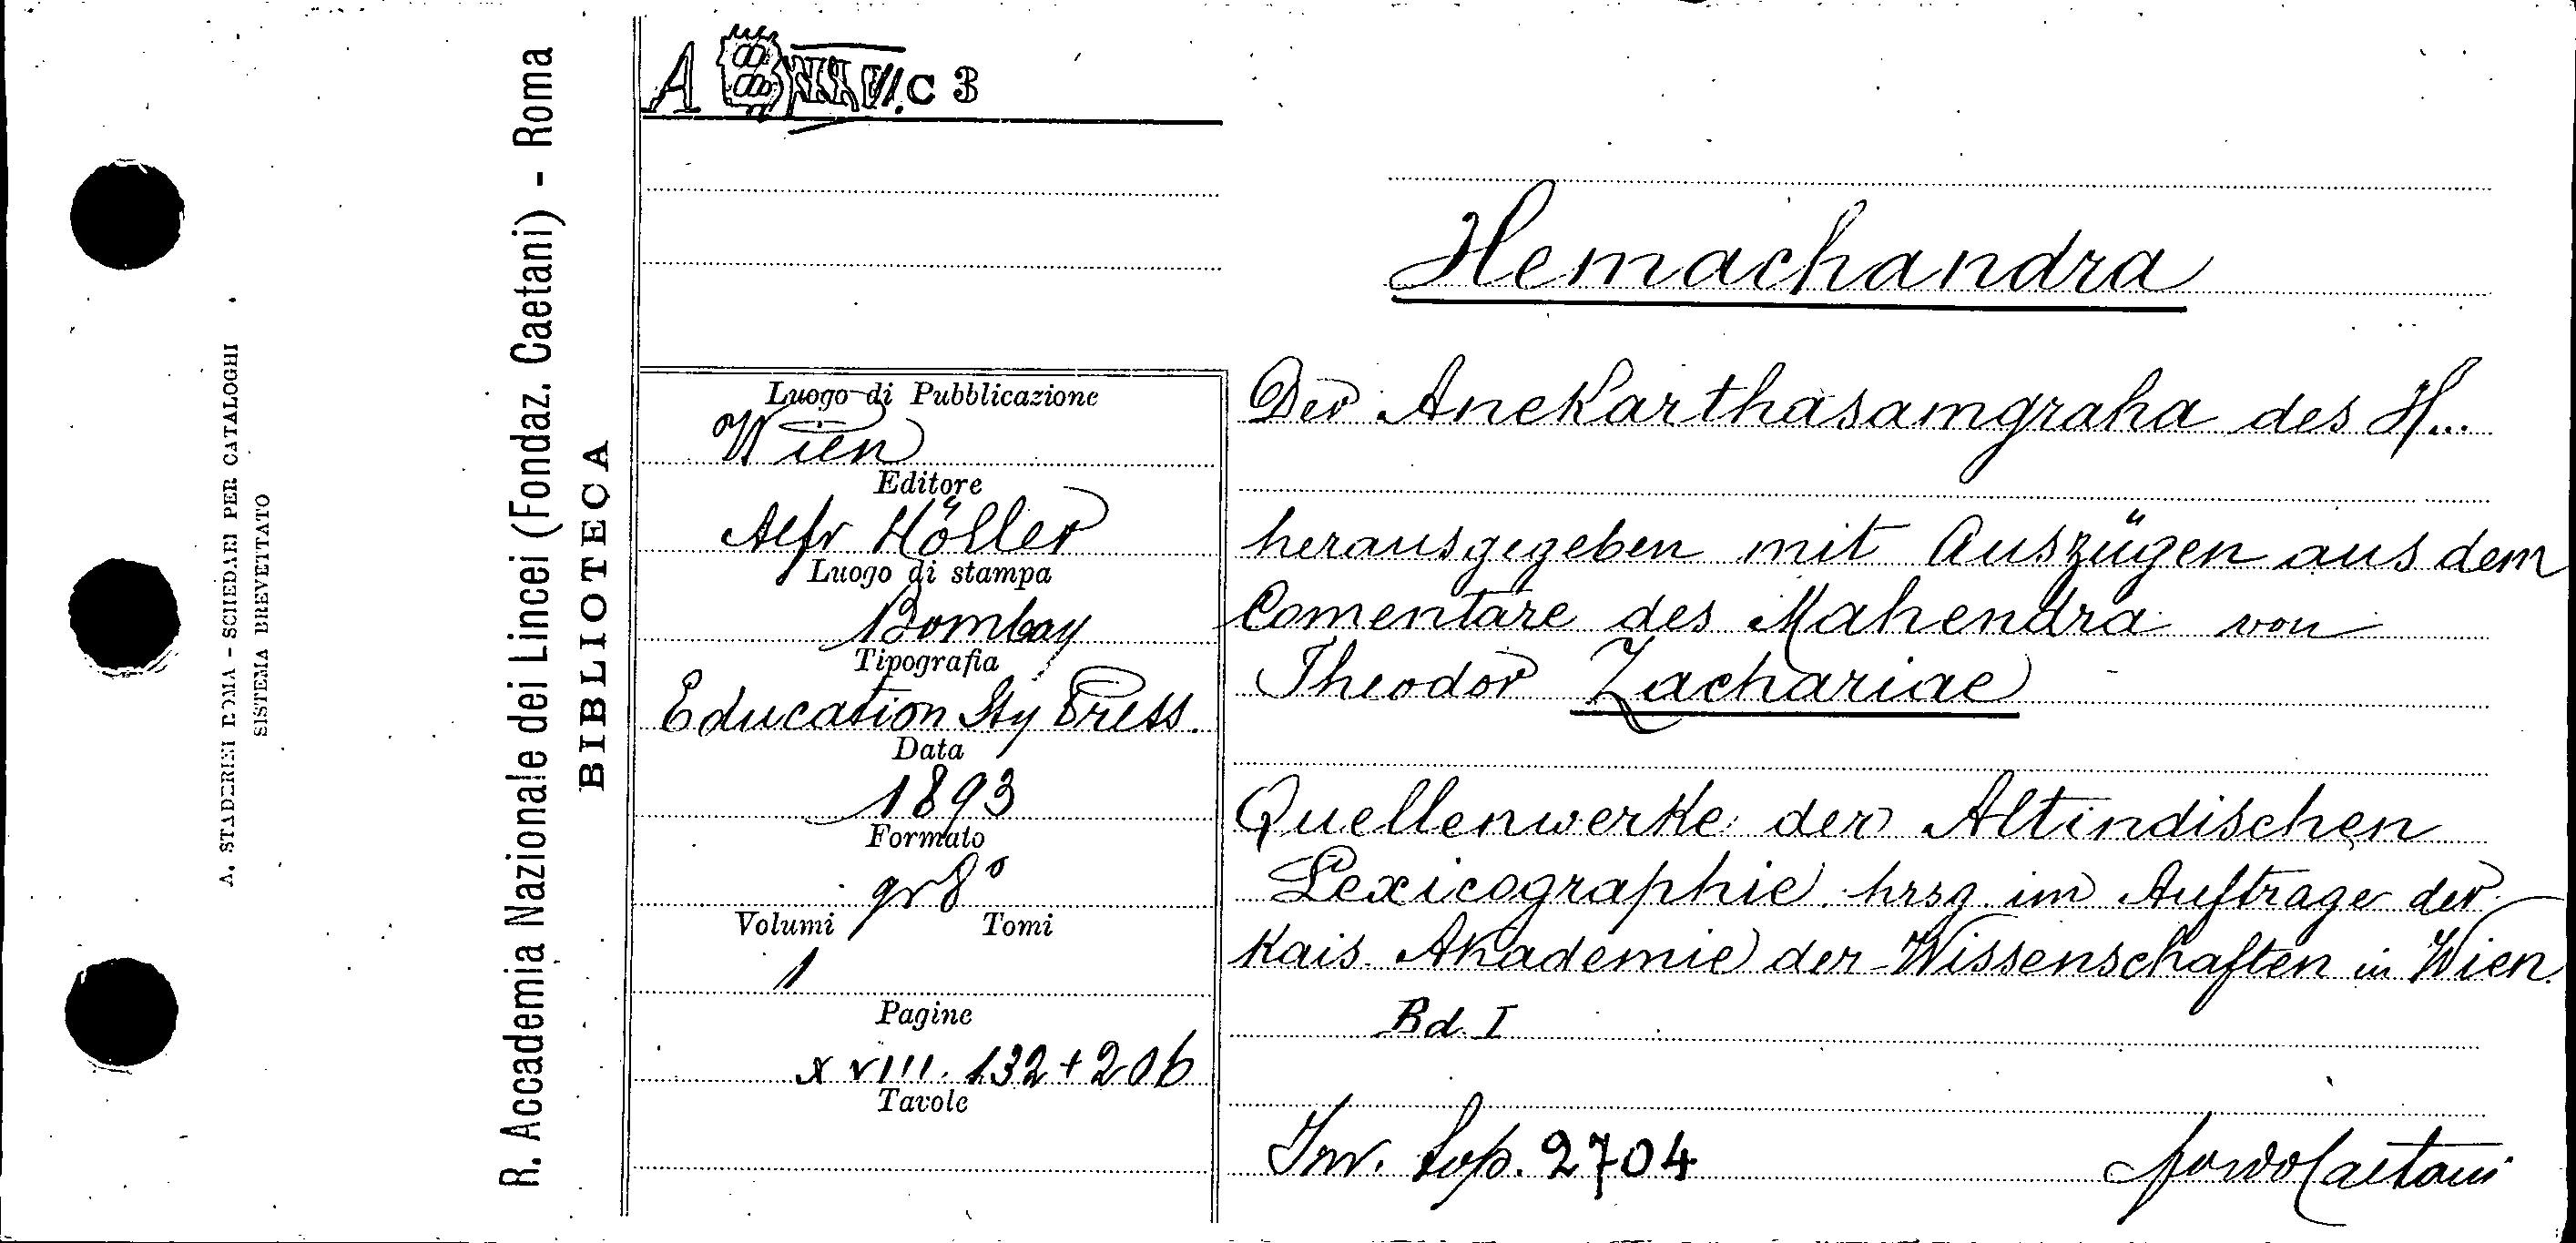 A XXXVI. C 3
Hemachandra
Der Anekarthasamgraha des H...
herausgegeben mit Auszügen aus dem
Comentare des Mahendra von
Theodor Zachariae
Quellenwerke der Altindischen
Lexicographie hrsg. im Auftrage der
Kais. Akademie der Wissenschaften in Wien.
Bd. I
Inv. Sup. 2704
fondo Caetani
Luogo di Pubblicazione
Wien
Editore
Alfr Höller
Luogo di stampa
Bombay
Tipografia
Education Sty Press.
Data
1893
Formato
gr 8°
Volumi Tomi
1
Pagine
XVIII. 132 + 206
Tavole
R. Accademia Nazionale dei Lincei (Fondaz. Caetani) - Roma
BIBLIOTECA
A. STADERINI ROMA - SCHEDARI PER CATALOGHI
SISTEMA BREVETTATO